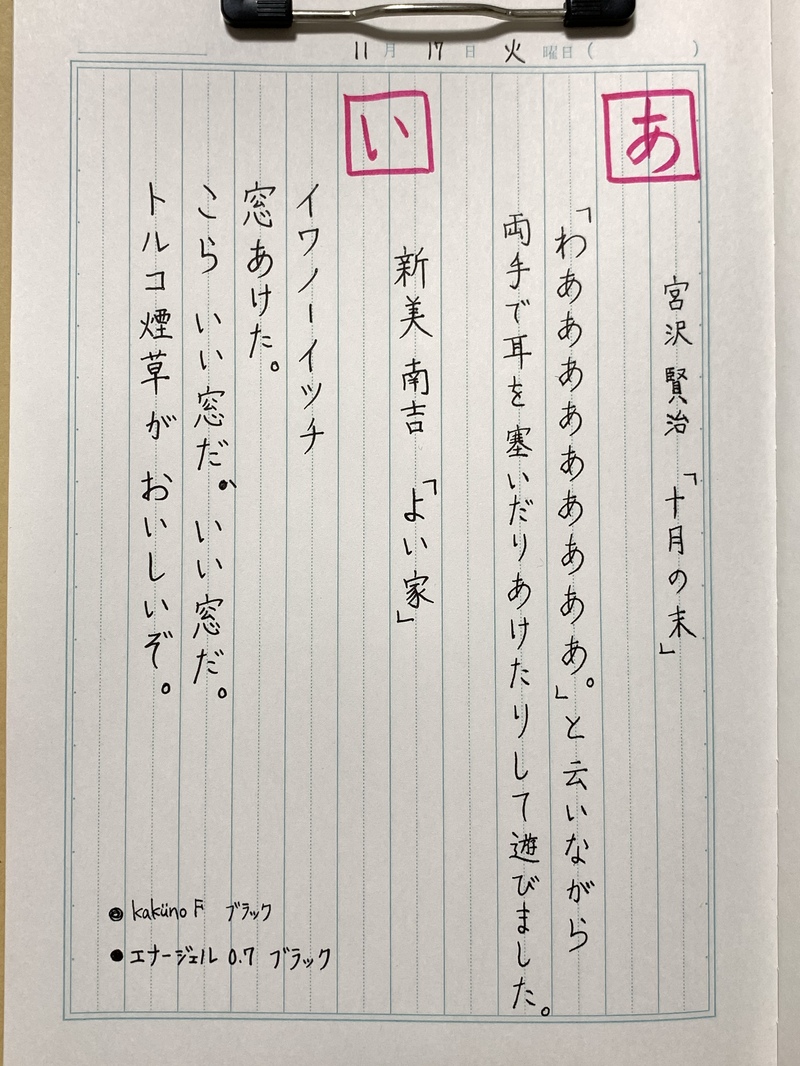 11月17日火曜日( )
あ
宮沢賢治「十月の末」
「わあああああああああ。」と云いながら
両手で耳を塞いだりあけたりして遊びました。
い
新美南吉「よい家」
イワノーイッチ
窓あけた。
こら いい窓だ、いい窓だ。
トルコ煙草が おいしいぞ。
◎ kaküno F ブラック
● エナージェル 0.7 ブラック